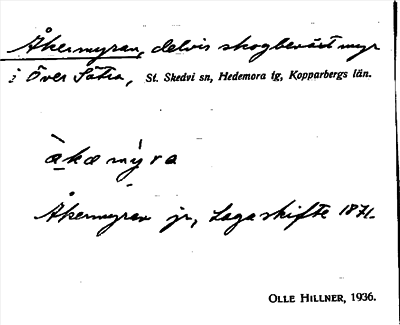 Åkermyran, delvis skogbevåxt myr
i Över Sätra, St. Skedvi sn, Hedemora tg, Kopparbergs län.
àkæ mýra
Åkermyran jr, Laga skifte 1871.
OLLE HILLNER, 1936.